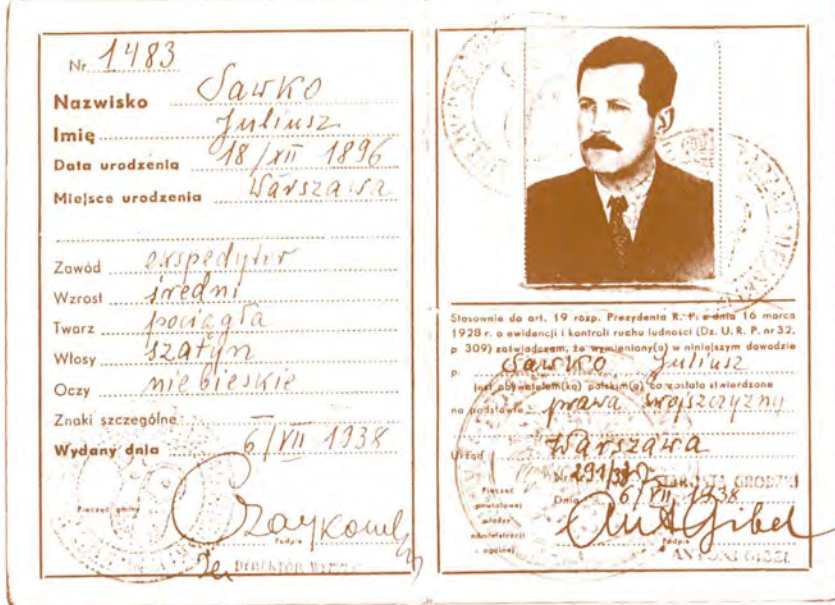 Nr. 1483
Nazwisko Sawko
Imię Juliusz
Data urodzenia 18/XII 1896
Miejsce urodzenia Warszawa
Zawód ekspedytor
Wzrost średni
Twarz pociągła
Włosy szatyn
Oczy niebieskie
Znaki szczególne —
Wydany dnia 6/VII 1938
Pieczęć gminy
Podpis
DYREKTOR
Stosownie do art. 19 rozp. Prezydenta R. P. z dnia 16 marca
1928 r. o ewidencji i kontroli ruchu ludności (Dz. U. R. P. nr 32,
p. 309) zaświadczam, że wymieniony(a) w niniejszym dowodzie
p. Sawko Juliusz
jest obywatelem(ką) polskim(ą) co zostało stwierdzone
na podstawie prawa swojszczyzny
Urząd Warszawa
Nr 291/38 STAROSTA GRODZKI
Dnia 6/VII 1938
Pieczęć
powiatowej
władzy
administracji
ogólnej
Ant Gibel
Podpis
ANTONI GIBEL